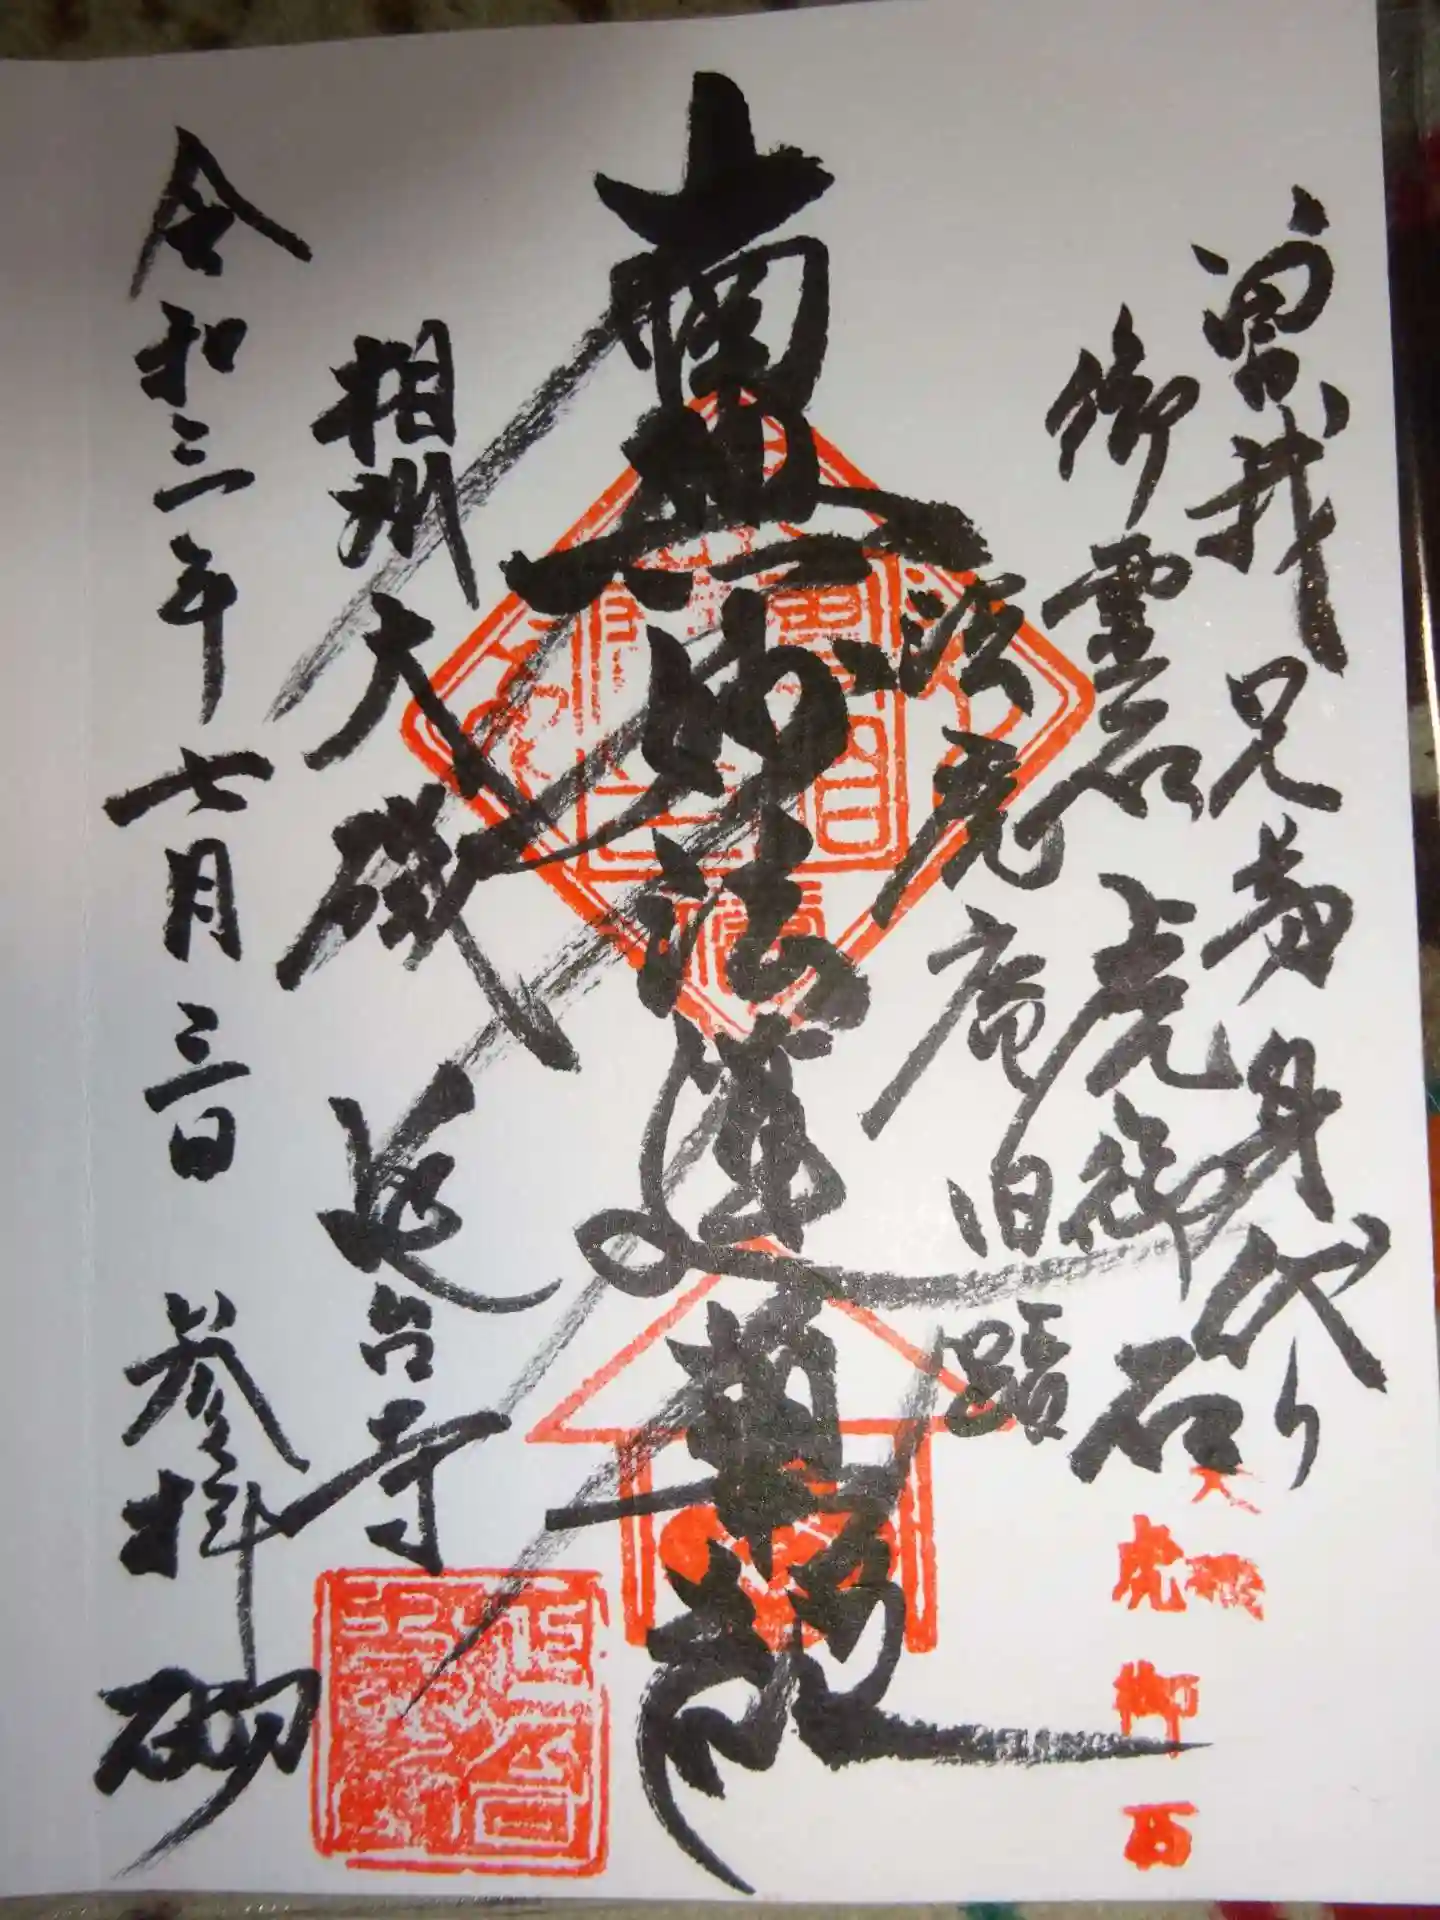 曽我兄弟身代り
御霊石 虎御石
法虎庵旧蹟
南無妙法蓮華経
相州大磯 延台寺
令和三年七月三日 参拝
大磯
虎御石